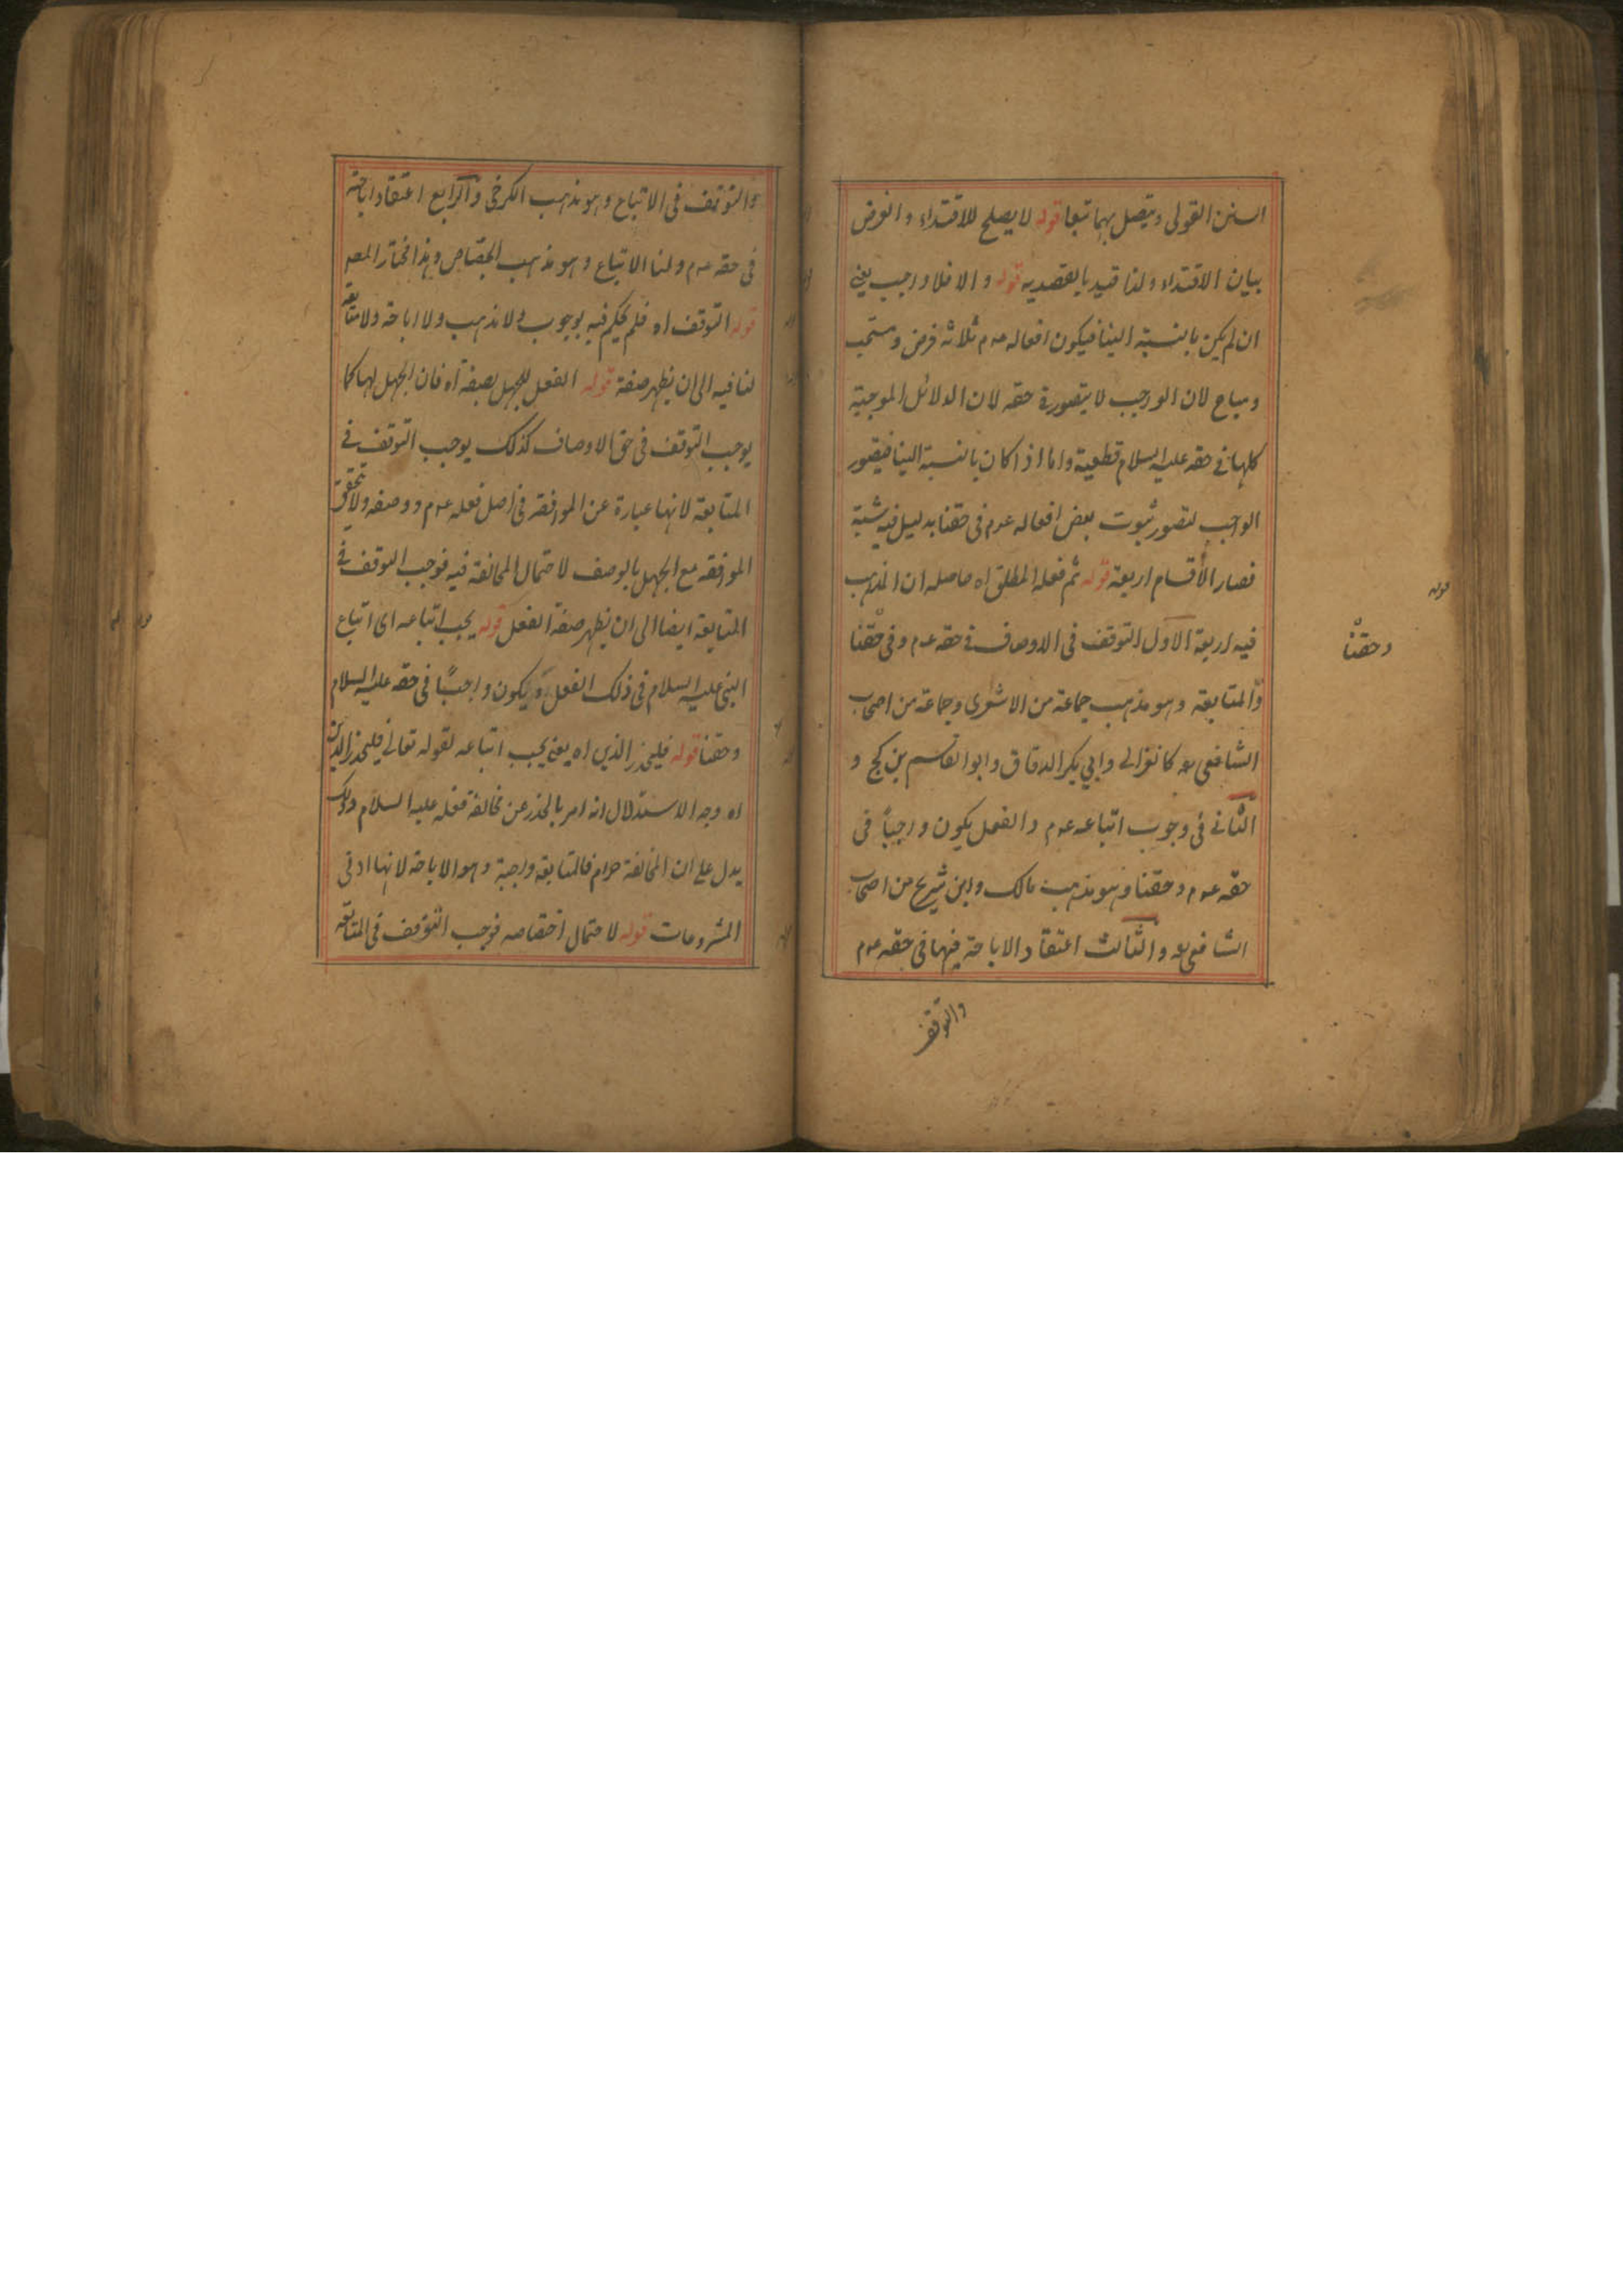 السنن القولى ويتصل بهما تبعا قوله لا يصلح للاقتداء والغرض
بيان الاقتداء ولذا قيد بالقصدية قوله والا فلا واجب يعنى
ان لم يكن بالنسبة الينا فيكون افعاله عدم ثلاثة فرض ومستحب
ومباح لان الواجب لا يتصور فى حقه لان الدلائل الموجبة
كلها فى حقه عليه السلام قطعية واما اذا كان بالنسبة الينا فيتصور
الواجب لتصور ثبوت بعض افعاله عدم فى حقنا بدليل فيه شبهة
فصار الأقسام اربعة قوله ثم فعله المطلق اه حاصله ان المذهب
فيه اربعة الاول التوقف فى الاوصاف فى حقه عدم وفى حقنا
والمتابعة وهو مذهب جماعة من الاشعرى وجماعة من اصحاب
الشافعى رحه كالغزالى وابي بكر الدقاق وابو القاسم بن كج و
الثانى فى وجوب اتباعه عدم والفعل يكون واجباً فى
حقه عدم وحقنا وهو مذهب مالك وابن شريح من اصحاب
الشافعى رحه والثالث اعتقاد الاباحة فيها فى حقه عدم
والتوقف
وحقنا
قوله
والتوقف فى الاتباع وهو مذهب الكرخى والرابع اعتقاد اباحته
فى حقه عدم ولنا الاتباع وهو مذهب الجصاص وهذا مختار المص
قوله التوقف اه فلم يحكم فيه بوجوب ولا ندب ولا اباحة ولا متابعة
لنا فيه الى ان يظهر صفة قوله الفعل للجهل بصفته اه فان الجهل لها كما
يوجب التوقف فى حق الاوصاف كذلك يوجب التوقف فى
المتابعة لانها عبارة عن الموافقة فى اصل فعله عدم ووصفه ولا يتحقق
الموافقة مع الجهل بالوصف لاحتمال المخالفة فيه فوجب التوقف فى
المتابعة ايضا الى ان يظهر صفة الفعل قوله يجب اتباعه اى اتباع
النبى عليه السلام فى ذلك الفعل ويكون واجباً فى حقه عليه السلام
وحقنا قوله فليحذر الذين اه يعنى يجب اتباعه لقوله تعالى فليحذر الذين
اه وجه الاستدلال انه امر بالحذر عن مخالفة فعله عليه السلام وذلك
يدل على ان المخالفة حرام فالمتابعة واجبة وهو الاباحة لانها ادنى
المشروعات قوله لاحتمال اختصاصه فوجب التوقف فى المتابعة